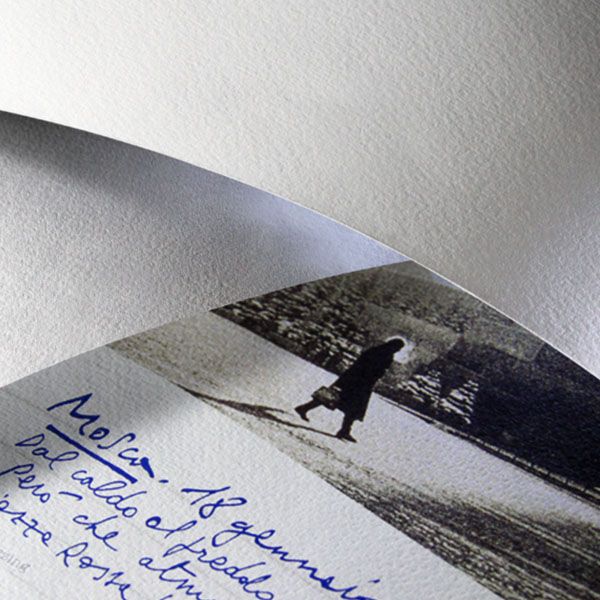 Mosca. 18 gennaio
Dal caldo al freddo
però che atm
iazza Rossa